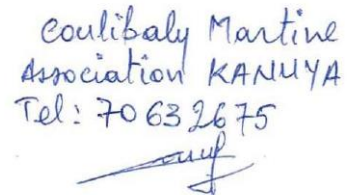 Coulibaly Martine
Association KANUYA
Tel: 70 63 26 75